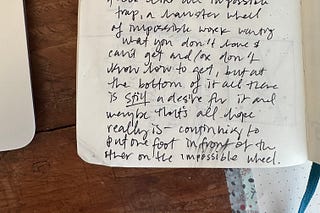 trap, a hamster wheel
of impossible work wanting
what you don't have &
can't get and/or don't
know how to get, but at
the bottom of it all there
is still a desire for it and
maybe that's all hope
really is – continuing to
put one foot in front of the
other on the impossible wheel.